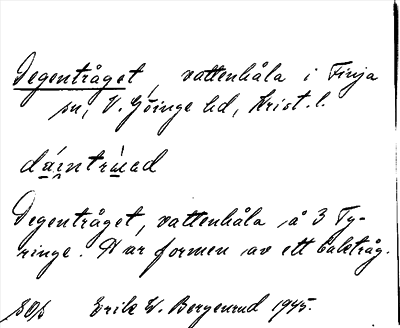 Degentråget, vattenhåla i Finja
sn, V. Göinge hd, Krist. l.
dáintrùad
Degentråget, vattenhåla å 3 Ty-
ringe. Har formen av ett baktråg.
Erik W. Bergenrud 1945.